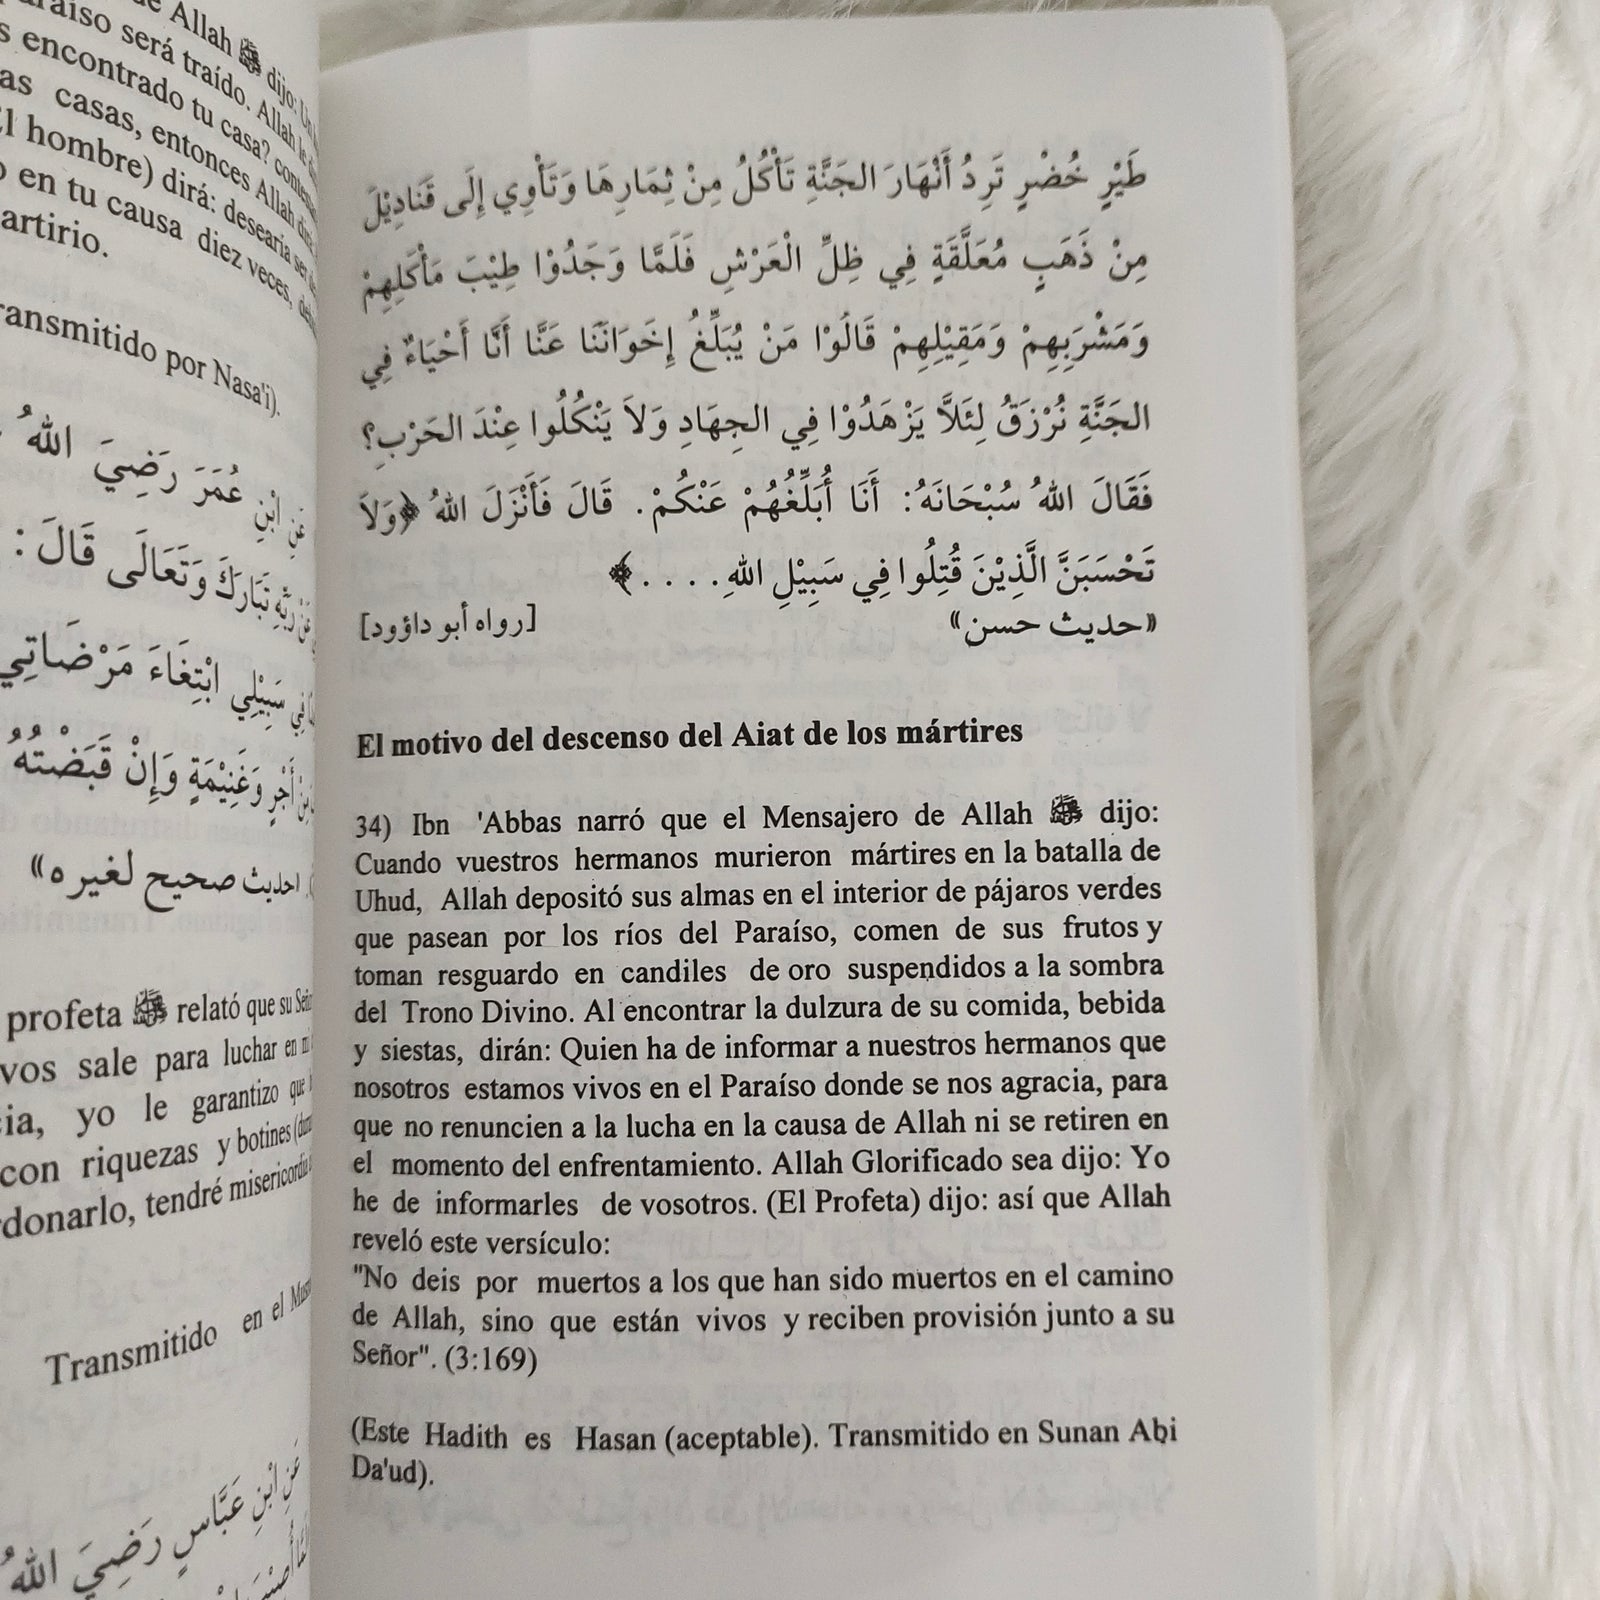 de Allah ﷺ dijo: Un
Paraíso será traído. Allah le
encontrado tu casa?
casas, entonces Allah dirá:
El hombre) dirá: desearía ser
en tu causa diez veces,
artirio.
ransmitido por Nasa'i).
عَنِ ابْنِ عُمَرَ رَضِيَ اللهُ
عَنْ رَبِّهِ تَبَارَكَ وَتَعَالَى قَالَ :
فِي سَبِيْلِي ابْتِغَاءَ مَرْضَاتِي
مِنْ أَجْرٍ وَغَنِيْمَةٍ وَإِنْ قَبَضْتُهُ
حديث صحيح لغيره»
profeta ﷺ relató que su Señor
vos sale para luchar en mi
cia, yo le garantizo que
con riquezas y botines
rdonarlo, tendré misericordia
Transmitido en el
عَنِ ابْنِ عَبَّاسٍ رَضِيَ اللهُ
طَيْرٍ خُضْرٍ تَرِدُ أَنْهَارَ الجَنَّةِ تَأْكُلُ مِنْ ثِمَارِهَا وَتَأْوِي إِلَى قَنَادِيْلَ
مِنْ ذَهَبٍ مُعَلَّقَةٍ فِي ظِلِّ الْعَرْشِ فَلَمَّا وَجَدُوْا طِيْبَ مَأْكَلِهِمْ
وَمَشْرَبِهِمْ وَمَقِيْلِهِمْ قَالُوْا مَنْ يُبَلِّغُ إِخَوَانَنَا عَنَّا أَنَّا أَحْيَاءٌ فِي
الجَنَّةِ نُرْزَقُ لِئَلاَّ يَزْهَدُوْا فِي الجِهَادِ وَلاَ يَنْكُلُوا عِنْدَ الحَرْبِ؟
فَقَالَ اللهُ سُبْحَانَهُ: أَنَا أُبَلِّغُهُمْ عَنْكُمْ. قَالَ فَأَنْزَلَ اللهُ ﴿وَلاَ
تَحْسَبَنَّ الَّذِيْنَ قُتِلُوا فِي سَبِيْلِ اللهِ. . . .﴾
«حديث حسن» [رواه أبو داؤود]
El motivo del descenso del Aiat de los mártires
34) Ibn 'Abbas narró que el Mensajero de Allah ﷺ dijo:
Cuando vuestros hermanos murieron mártires en la batalla de
Uhud, Allah depositó sus almas en el interior de pájaros verdes
que pasean por los ríos del Paraíso, comen de sus frutos y
toman resguardo en candiles de oro suspendidos a la sombra
del Trono Divino. Al encontrar la dulzura de su comida, bebida
y siestas, dirán: Quien ha de informar a nuestros hermanos que
nosotros estamos vivos en el Paraíso donde se nos agracia, para
que no renuncien a la lucha en la causa de Allah ni se retiren en
el momento del enfrentamiento. Allah Glorificado sea dijo: Yo
he de informarles de vosotros. (El Profeta) dijo: así que Allah
reveló este versículo:
"No deis por muertos a los que han sido muertos en el camino
de Allah, sino que están vivos y reciben provisión junto a su
Señor". (3:169)
(Este Hadith es Hasan (aceptable). Transmitido en Sunan Abi
Da'ud).